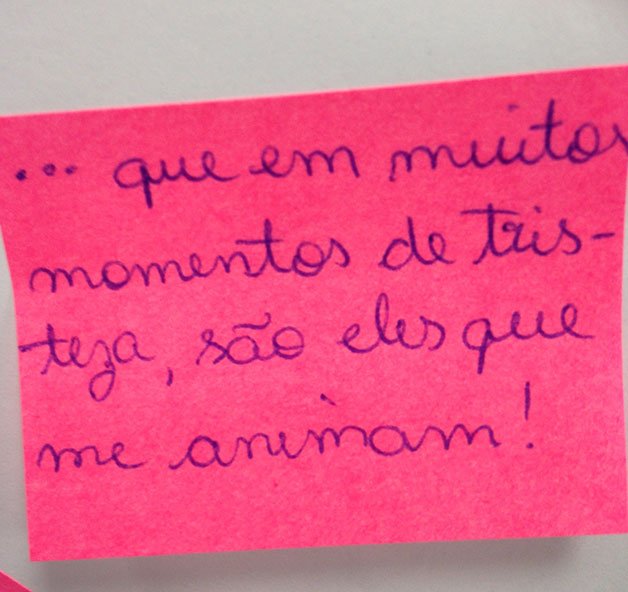 ... que em muitos
momentos de tris-
teza, são eles que
me animam!